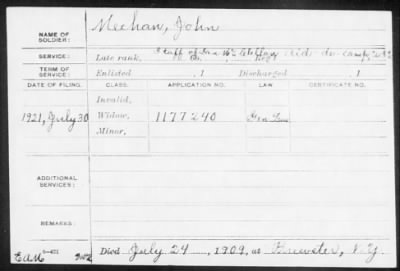 NAME OF SOLDIER: Meehan, John
SERVICE: Staff of Gen W
Late rank,
TERM OF SERVICE: Enlisted , 1 Discharged , 1
DATE OF FILING. CLASS. APPLICATION NO. LAW CERTIFICATE NO.
Invalid,
1921, July 30 Widow, 1177240 Gen Law
Minor,
ADDITIONAL SERVICES:
REMARKS:
Died July 24, 1909, at Brewster, N.Y.